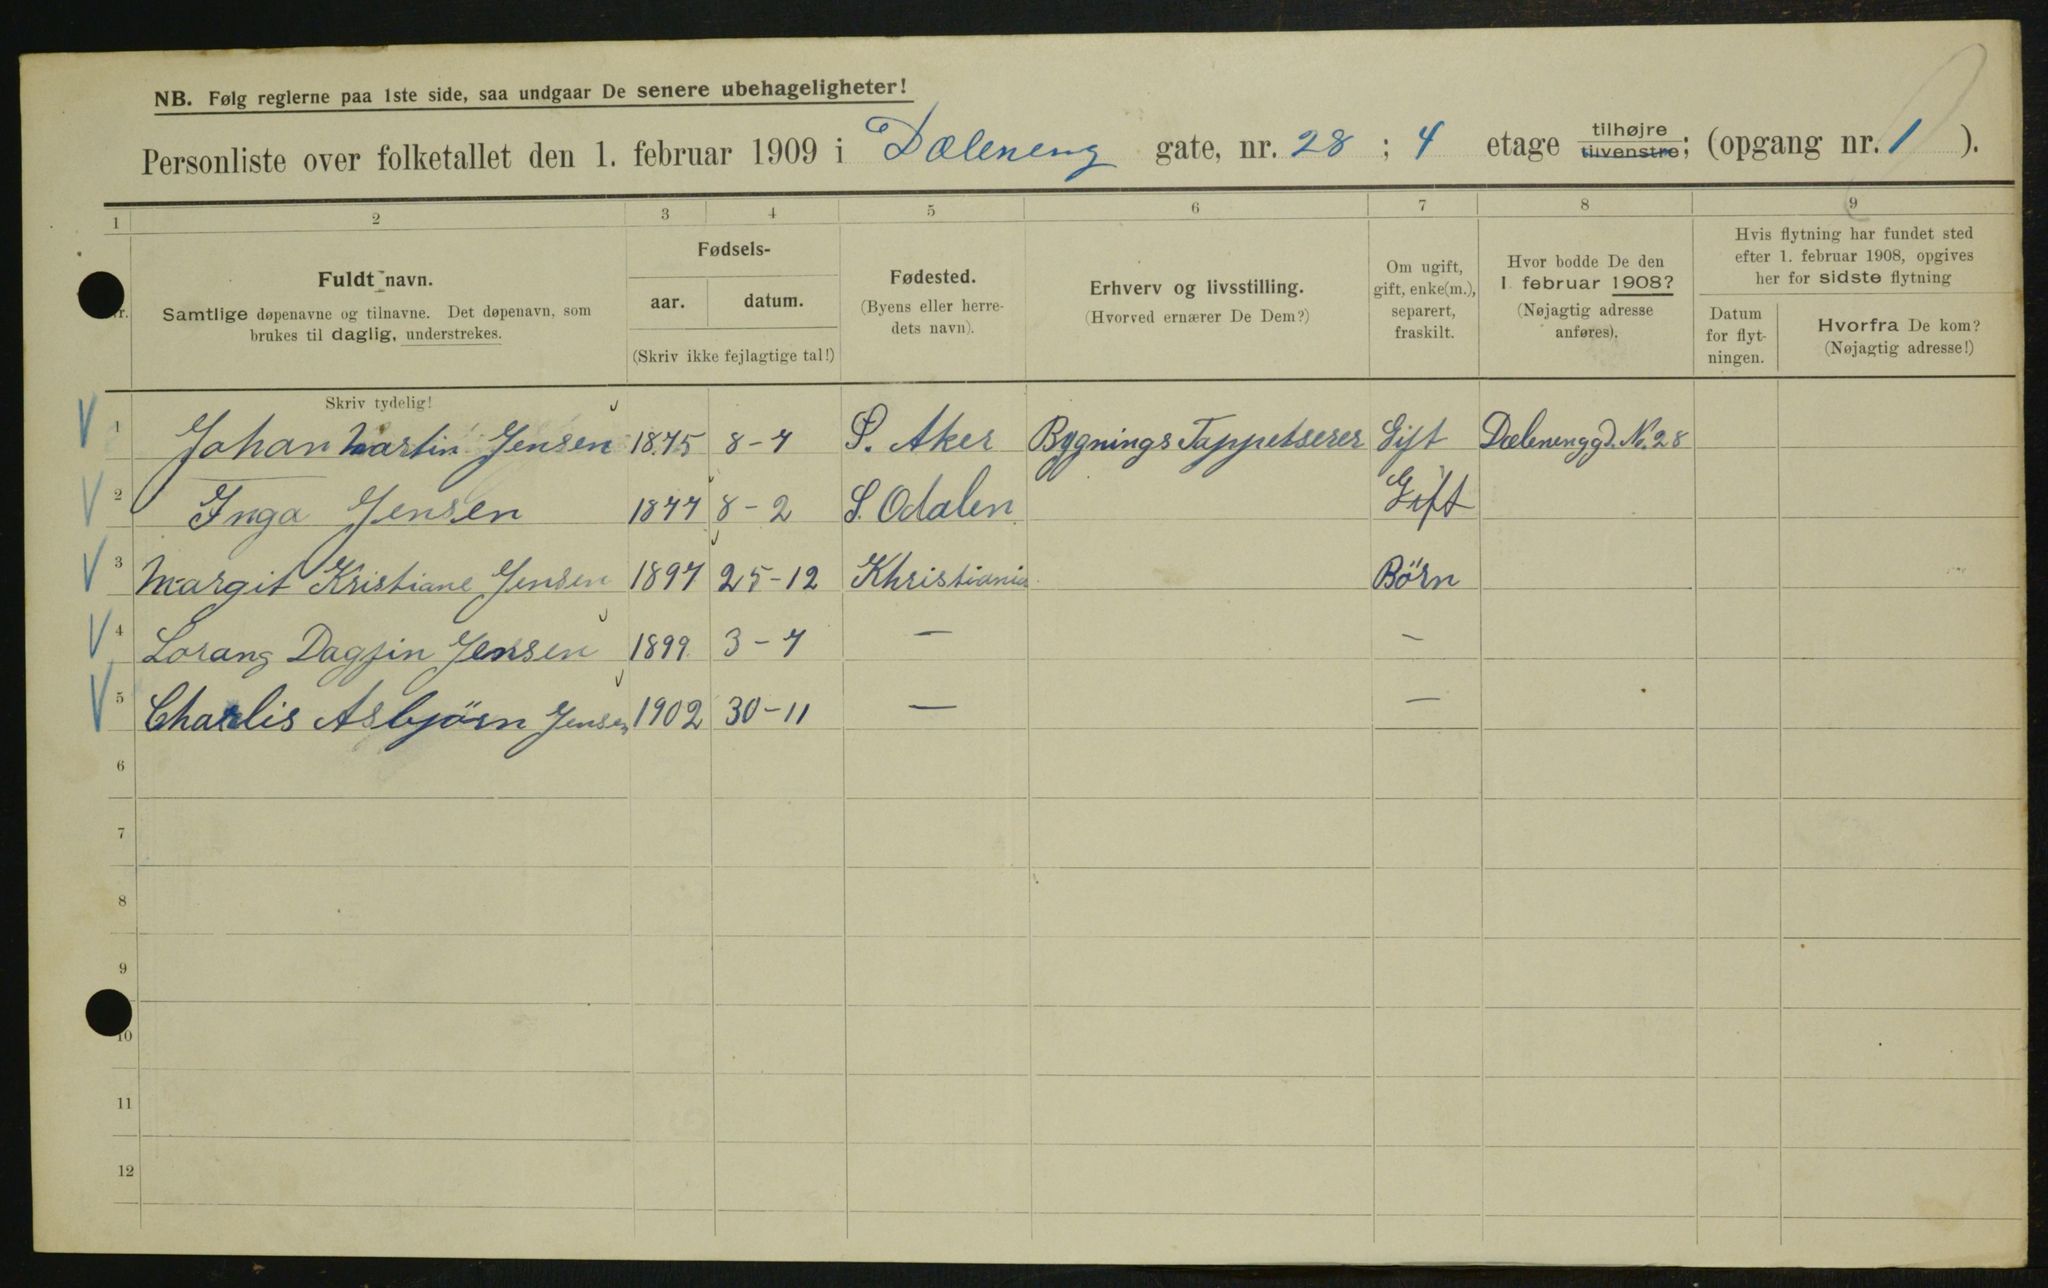 NB. Følg reglerne paa 1ste side, saa undgaar De senere ubehageligheter!
Personliste over folketallet den 1. februar 1909 i Dæleneng gate, nr. 28 ; 4 etage tilhøjre tilvenstre; (opgang nr. 1 ).
1 2 3 4 5 6 7 8 9
Nr. Fuldt navn. Samtlige døpenavne og tilnavne. Det døpenavn, som brukes til daglig, understrekes.
Fødsels- aar. datum. (Skriv ikke fejlagtige tal!)
Fødested. (Byens eller herredets navn).
Erhverv og livsstilling. (Hvorved ernærer De Dem?)
Om ugift, gift, enke(m.), separert, fraskilt.
Hvor bodde De den 1 februar 1908? (Nøjagtig adresse anføres).
Hvis flytning har fundet sted efter 1. februar 1908, opgives her for sidste flytning
Datum for flytningen. Hvorfra De kom? (Nøjagtig adresse!)
Skriv tydelig!
1 Johan Martin Jensen 1875 8-7 S. Aker Bygnings Tappetserer Gift Dælenenggd. No. 28
2 Inga Jensen 1877 8-2 S. Odalen Gift
3 Margit Kristiane Jensen 1897 25-12 Khristiania Børn
4 Lorang Dagfin Jensen 1899 3-7 — —
5 Charlis Asbjörn Jensen 1902 30-11 — —
6
7
8
9
10
11
12